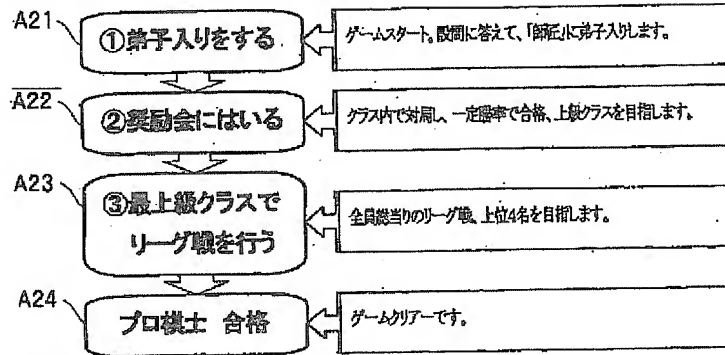 A21
①弟子入りをする
ゲームスタート。設問に答えて、「師匠」に弟子入りします。
A22
②奨励会にはいる
クラス内で対局し、一定勝率で合格、上級クラスを目指します。
A23
③最上級クラスで
リーグ戦を行う
全員総当りのリーグ戦、上位4名を目指します。
A24
プロ棋士 合格
ゲームクリアーです。